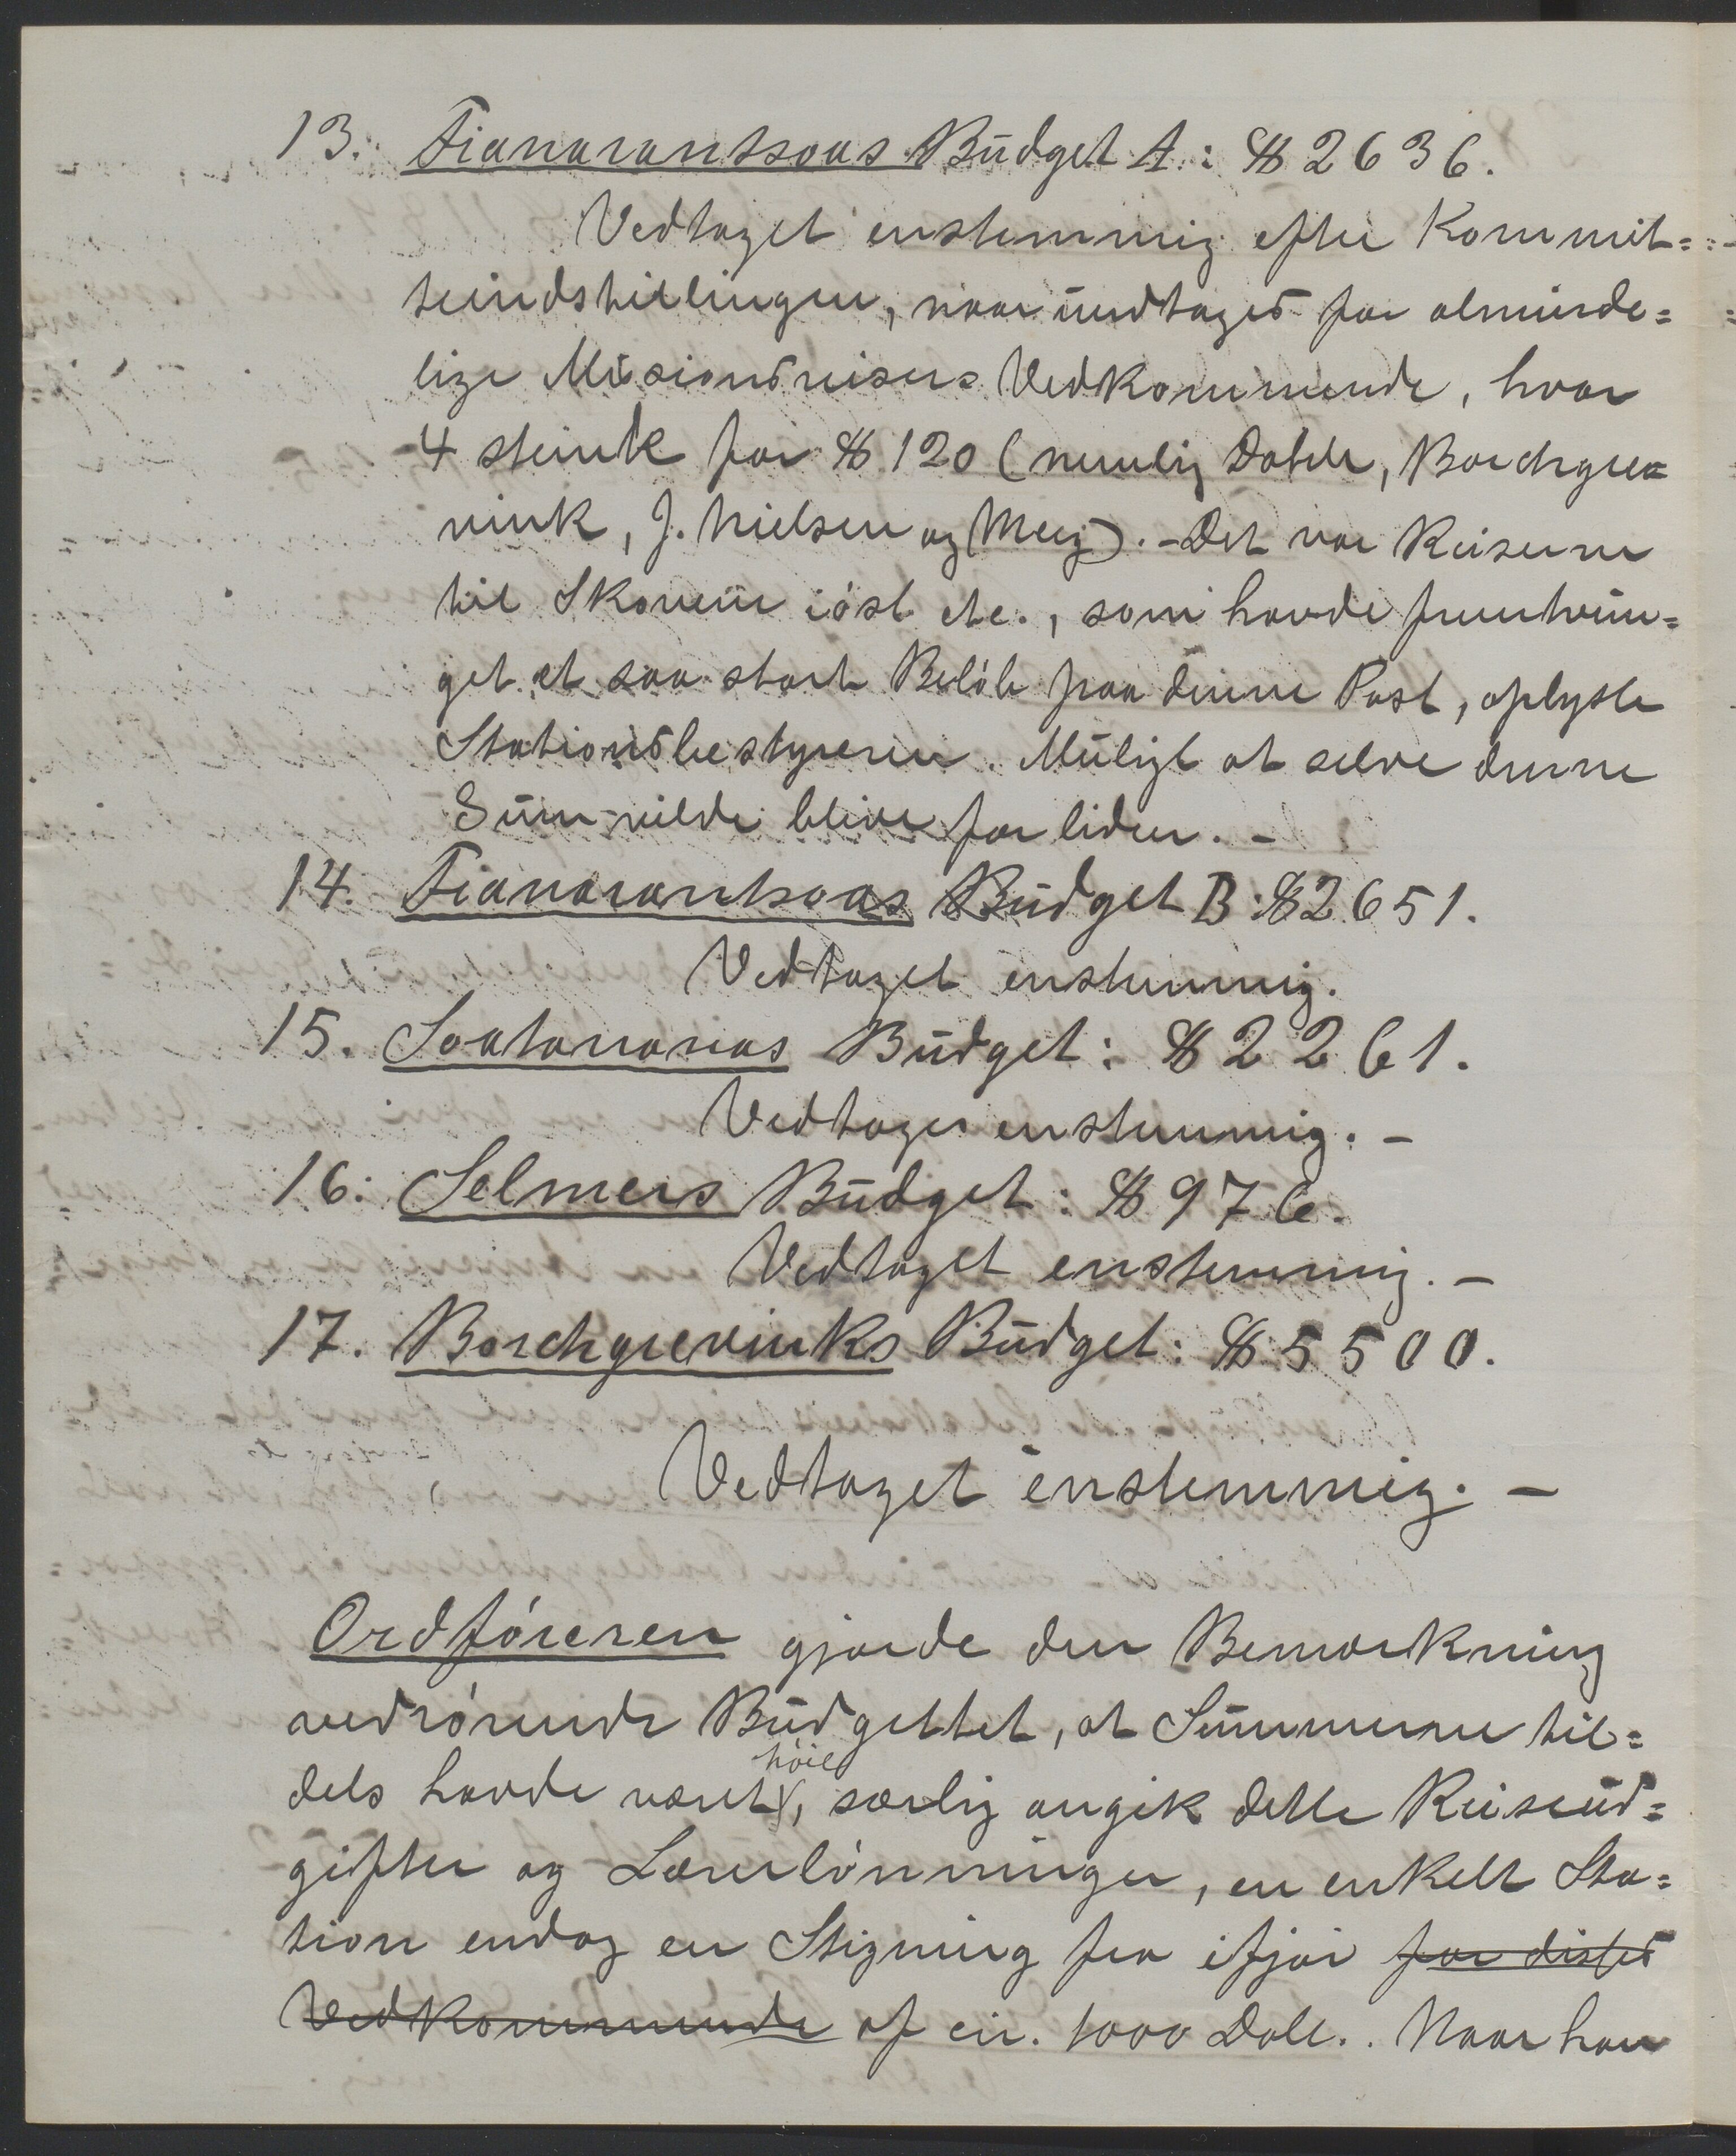 13. Fianarantsoas Büdget A.: $ 2636.
Vedtaget enstemmig efter Kommit=
teindstillingen, naar ündtages for alminde=
lige Missionsreisers Vedkommende, hvor
4 stemte for $ 120 (nemlig Dahle, Borchgre=
vink, J. Nielsen og Meeg). - Det var Reiserne
til Skoven iøst etc., som havde fremtvün=
get et saa stort Beløb paa denne Post, oplyste
Stationsbestyreren. Müligt at selve denne
Süm vilde blive for liden. -
14. Fianarantsoas Büdget B: $2651.
Vedtaget enstemmig.
15. Soatananas Büdget: $ 2261.
Vedtages enstemmig. -
16: Selmers Büdget: $ 976.
Vedtaget enstemmig. -
17. Borchgrevinks Büdget: $ 5500.
Vedtaget enstemmig. -
Ordføreren gjorde den Bemærkning
vedrørende Büdgettet, at Sümmerne til=
høie
dels havde været, særlig angik dette Reiseüd=
gifter og Lærerlønninger, en enkelt Sta=
tion endog en Stigning fra ifjor for disses
Vedkommende af cir. 1000 Doll.. Naar han